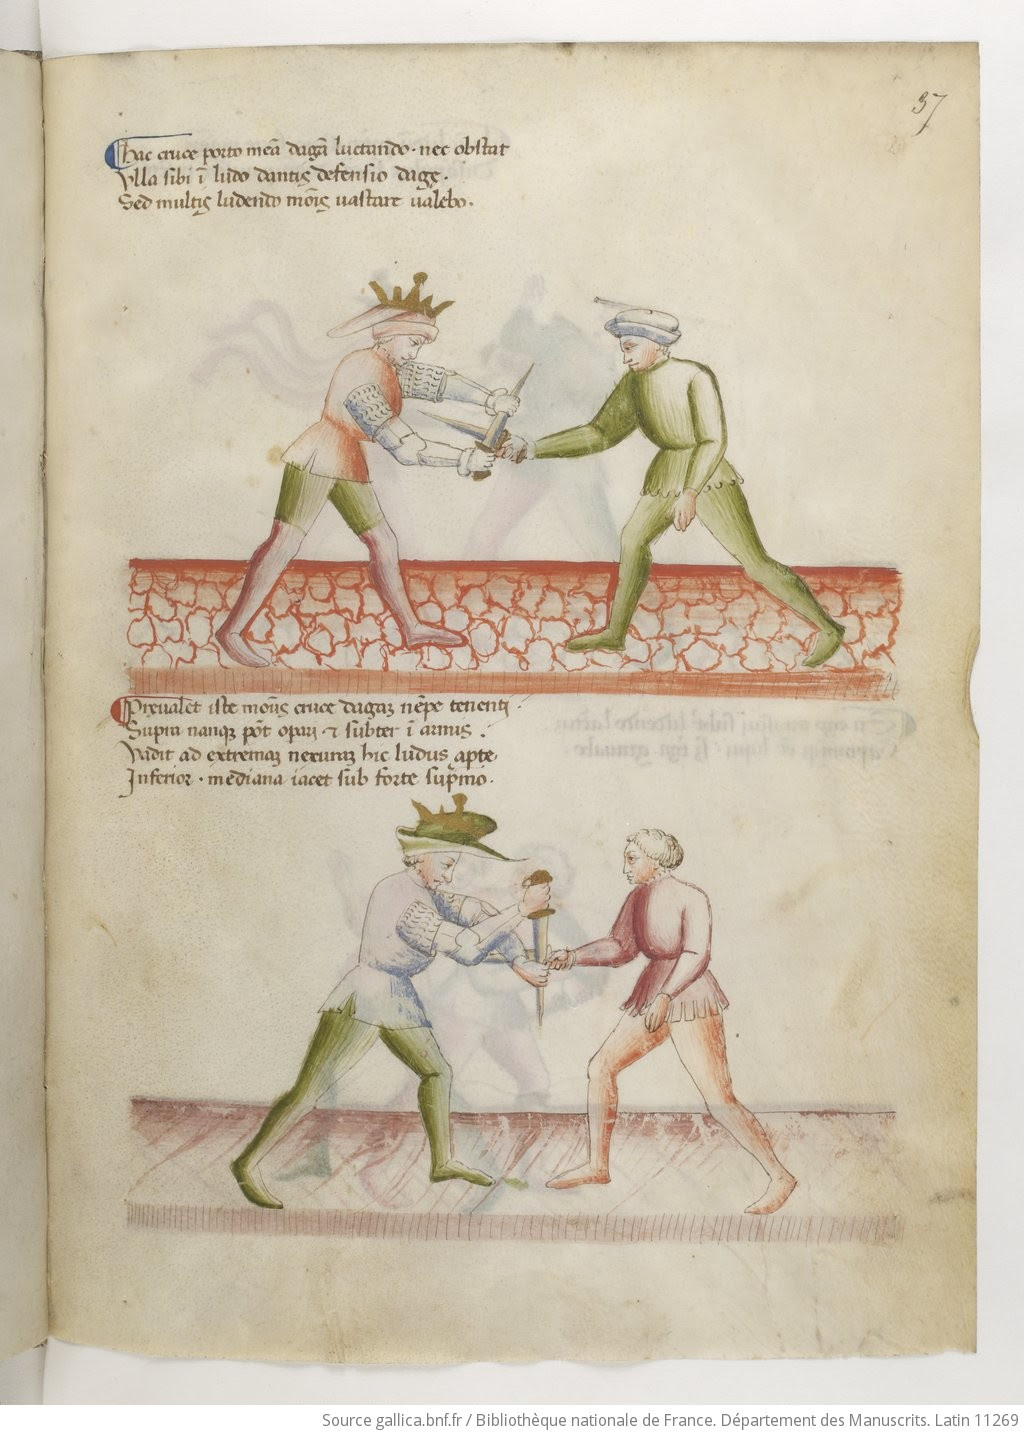 37
Hac cruce porto meā dagā luctando · nec obstat
Vlla sibi ī ludo dantis defensio dage ·
Sed multis ludendo mōis vastare valebo ·
Prevalet iste mōus cruce dagaꝫ nēpe tenenti ·
Supra nanqꝫ pōt opari ⁊ subter ī armis ·
Vadit ad extremaꝫ nexuraꝫ hic ludus apte ·
Inferior · mediana iacet sub forte sup̄mo ·
Source gallica.bnf.fr / Bibliothèque nationale de France. Département des Manuscrits. Latin 11269